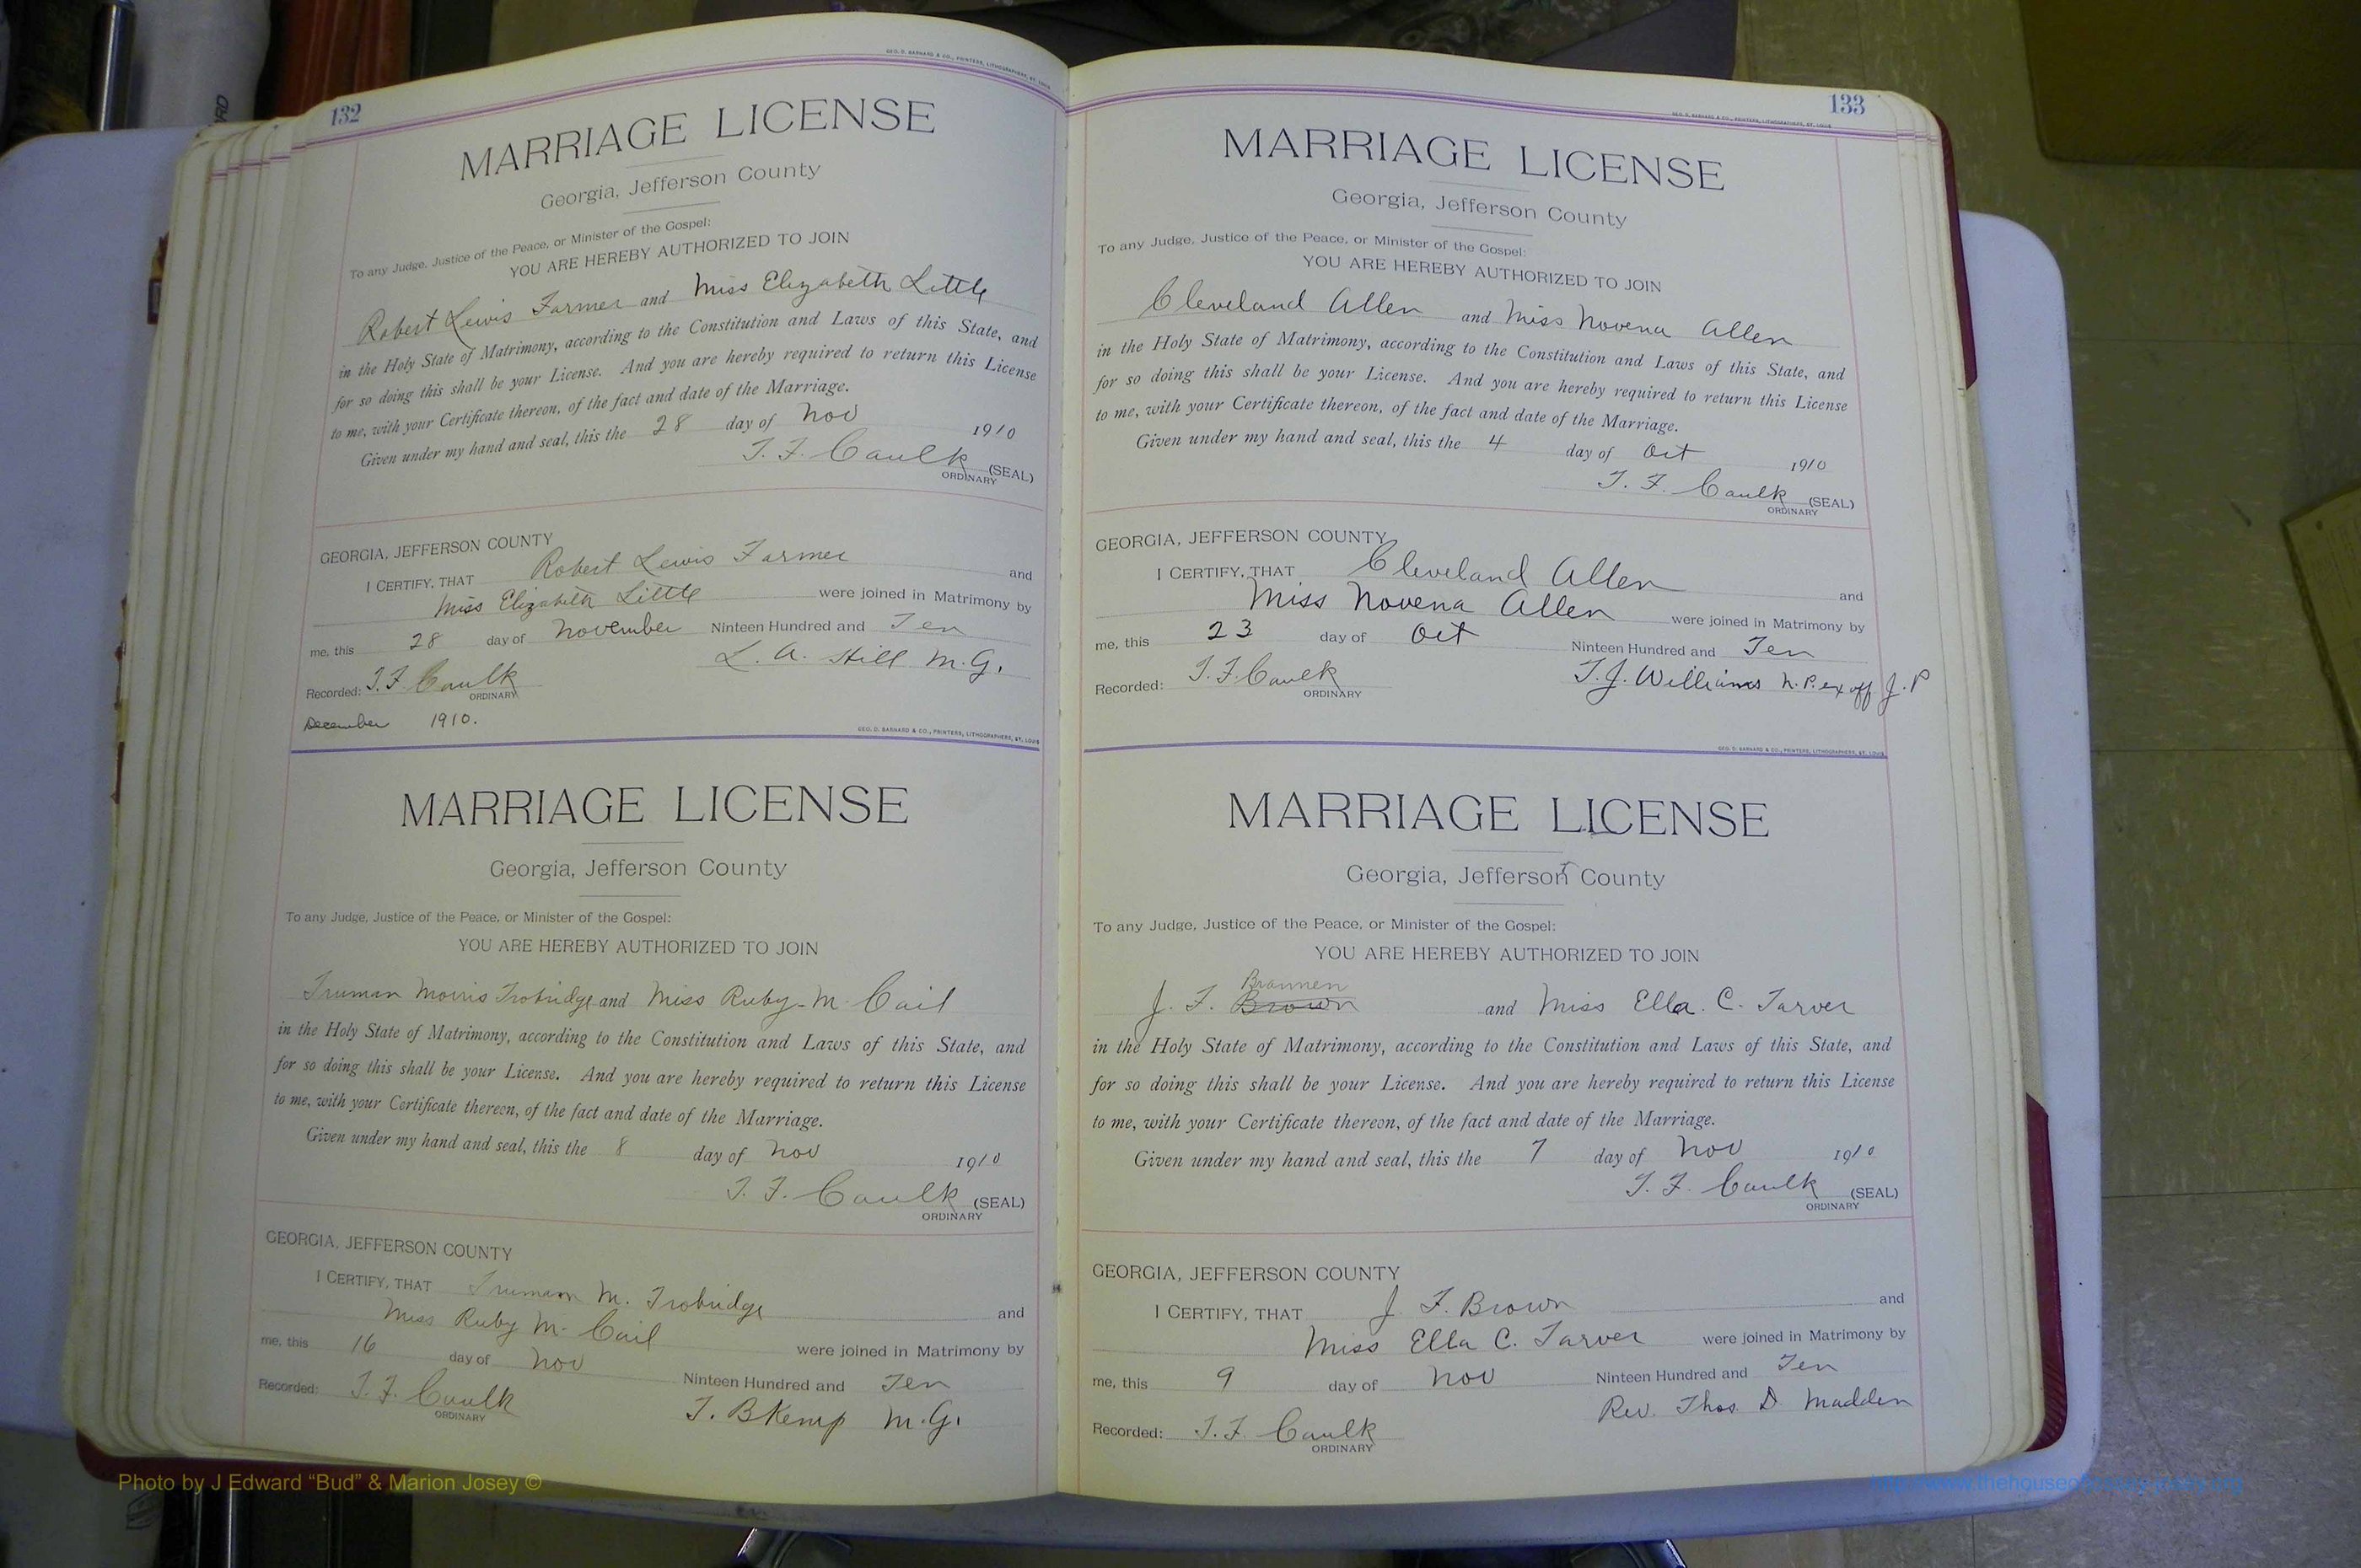 132
GEO. D. BARNARD & CO., PRINTERS, LITHOGRAPHERS, ST. LOUIS
MARRIAGE LICENSE
Georgia, Jefferson County
To any Judge, Justice of the Peace, or Minister of the Gospel:
YOU ARE HEREBY AUTHORIZED TO JOIN
Robert Lewis Farmer and Miss Elizabeth Little
in the Holy State of Matrimony, according to the Constitution and Laws of this State, and
for so doing this shall be your License. And you are hereby required to return this License
to me, with your Certificate thereon, of the fact and date of the Marriage.
Given under my hand and seal, this the 28 day of Nov 1910
T. F. Caulk (SEAL)
ORDINARY
GEORGIA, JEFFERSON COUNTY
I CERTIFY, THAT Robert Lewis Farmer and
Miss Elizabeth Little were joined in Matrimony by
me, this 28 day of November Ninteen Hundred and Ten
L. A. Hill M.G.
Recorded: T. F. Caulk
ORDINARY
December 1910.
GEO. D. BARNARD & CO., PRINTERS, LITHOGRAPHERS, ST. LOUIS
MARRIAGE LICENSE
Georgia, Jefferson County
To any Judge, Justice of the Peace, or Minister of the Gospel:
YOU ARE HEREBY AUTHORIZED TO JOIN
Truman Morris Trobridge and Miss Ruby M. Cail
in the Holy State of Matrimony, according to the Constitution and Laws of this State, and
for so doing this shall be your License. And you are hereby required to return this License
to me, with your Certificate thereon, of the fact and date of the Marriage.
Given under my hand and seal, this the 8 day of Nov 1910
T. F. Caulk (SEAL)
ORDINARY
GEORGIA, JEFFERSON COUNTY
I CERTIFY, THAT Trumann M. Trobridge and
Miss Ruby M. Cail were joined in Matrimony by
me, this 16 day of Nov Ninteen Hundred and Ten
Recorded: T. F. Caulk T. B Kemp M.G.
ORDINARY
133
GEO. D. BARNARD & CO., PRINTERS, LITHOGRAPHERS, ST. LOUIS
MARRIAGE LICENSE
Georgia, Jefferson County
To any Judge, Justice of the Peace, or Minister of the Gospel:
YOU ARE HEREBY AUTHORIZED TO JOIN
Cleveland Allen and Miss Novena Allen
in the Holy State of Matrimony, according to the Constitution and Laws of this State, and
for so doing this shall be your License. And you are hereby required to return this License
to me, with your Certificate thereon, of the fact and date of the Marriage.
Given under my hand and seal, this the 4 day of Oct 1910
T. F. Caulk (SEAL)
ORDINARY
GEORGIA, JEFFERSON COUNTY
I CERTIFY, THAT Cleveland Allen and
Miss Novena Allen were joined in Matrimony by
me, this 23 day of Oct Ninteen Hundred and Ten
Recorded: T. F. Caulk T. J. Williams N.P. ex off J.P
ORDINARY
GEO. D. BARNARD & CO., PRINTERS, LITHOGRAPHERS, ST. LOUIS
MARRIAGE LICENSE
Georgia, Jefferson County
To any Judge, Justice of the Peace, or Minister of the Gospel:
YOU ARE HEREBY AUTHORIZED TO JOIN
Brannen
J. F. Brown and Miss Ella. C. Tarver
in the Holy State of Matrimony, according to the Constitution and Laws of this State, and
for so doing this shall be your License. And you are hereby required to return this License
to me, with your Certificate thereon, of the fact and date of the Marriage.
Given under my hand and seal, this the 7 day of Nov 1910
T. F. Caulk (SEAL)
ORDINARY
GEORGIA, JEFFERSON COUNTY
I CERTIFY, THAT J. F. Brown and
Miss Ella C. Tarver were joined in Matrimony by
me, this 9 day of Nov Ninteen Hundred and Ten
Rev. Thos. D. Madden
Recorded: T. F. Caulk
ORDINARY
Photo by J Edward “Bud” & Marion Josey ©